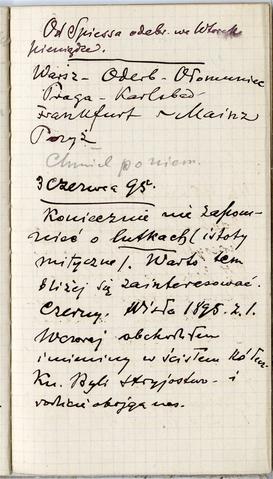 Od Spiessa odebr. we Wtorek
pieniądze.
Warsz - Oderb - Ołomuniec
Praga - Karlsbad
Frankfurt - Mainz
Paryż
Chmiel po niem.
3 Czerwca 95.
Koniecznie nie zapom-
nieć o lutkach (istoty
mityczne). Warto tem
bliżej się zainteresować.
Czerny. Wisła 1895. z. 1.
Wczoraj obchodziłem
imieniny w ścisłem kółku.
Kn. Byli stryjostwo i
rodzice oboje nas.